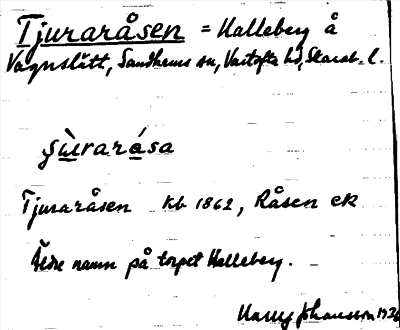 Tjuraråsen = Halleberg å
Vagnslätt, Sandhems sn, Vartofta hd, Skarab. l.
ʃùraråsa
Tjuraråsen kb 1862, Råsen ek
Äldre namn på torpet Halleberg.
Harry Johansson 1926